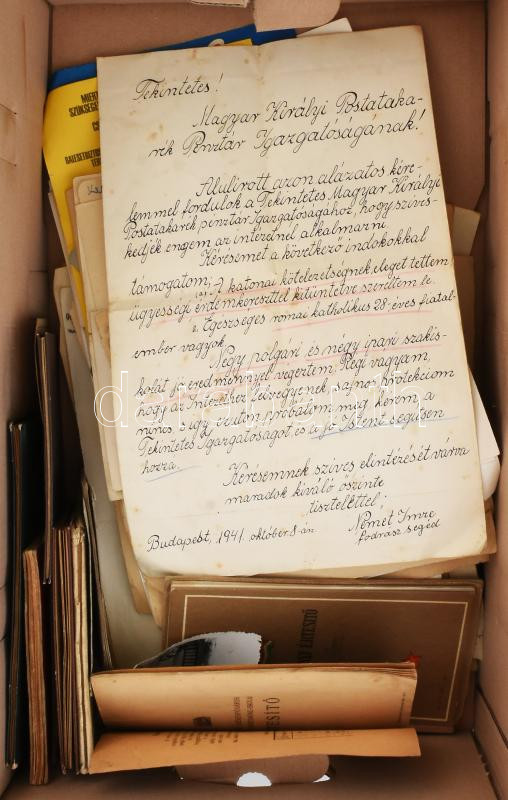 Tekintetes!
Magyar Királyi Postataka-
rék Pénztár Igazgatóságának!
Alulirott azon alázatos kére-
lemmel fordulok a Tekintetes Magyar Királyi
Postatakarék pénztár Igazgatóságához, hogy szíves-
kedjék engem az intézetnél alkalmazni.
Kérésimet a következő indokokkal
támogatom: A katonai kötelezettségnek eleget tettem
ügyességi érdemkereszttel kitüntetve szereltem le.
2. Egészséges római katholikus 28-éves fiatal-
ember vagyok.
Négy polgári és négy ipari szakis-
kolát jó eredménnyel végeztem. Régi vágyam,
hogy az Intézethez felvegyenek, sajnos protekcióm
nincs, s így ez úton próbálom meg, kérem a
Tekintetes Igazgatóságot és a jó Istent segitsen
hozzá.
Kérésemnek szíves elintézését várva
maradok kiváló őszinte
tisztelettel:
Budapest, 1941. október 8-án
Német Imre
fodrász segéd
MIÉRT
SZÜKSÉGE
ÉRTESÍTŐ
ESÍTŐ